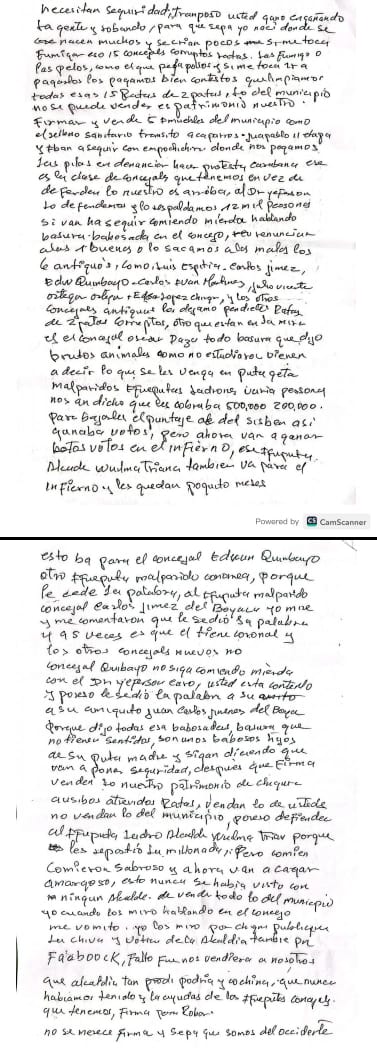 necesitan seguridad, tramposo usted gano engañando
ta gente y robando, para que sepa yo naci donde se
nacen muchos y se crian pocos si me toca
fumigar eso 15 concejales corruptos ratas. Las fumigo o
las pelos, como el que pela pollos y si me toca ir a
pagarlos los pagamos bien contestos que limpiamos
todas esas 15 Ratas de 2 patas, lo del municipio
no se puede vender es patrimonio nuestro.
Firmar y vende muebles del municipio como
el selleno sanitario transito acaparros
y tban a seguir con donde nos pagamos
sus pilas en denancion hacer protesta ese
es la clase de concejals que tenemos en vez de
defender lo nuestro es arroba, al Dr yeferson
Lo defendemos y lo respaldamos 12 mil peosones
Si van ha seguir comiendo mierda hablando
basura babosada en el concejo, renuncien
alos 4 buenos o lo sacamos alos malos los
6 antiguos, como, Luis Espitia, Carlos jimez,
Edw Quimbayo - Carlos Ivan Martines, julio vicente
ortega + Edgar lopez y los otros
concejales antiguos les dejamo pendietes Ratas
de 2 patas corruptos, otro que estan en la mira
es el conoejal oscar Daza todo basura que dijo
brutos animales como no estudiaron vienen
a decir lo que se les venga en puta geta
malparidos ladrones, varia persona
nos an dicho que les cobraba 500,000 200,000.
Para bajales el puntaje del sisben asi
ganaba votos, pero ahora van a ganar
votos en el infierno, ese
Alcade Wulma Triana tambien va para el
infierno y les quedan poquito meses
Powered by CS CamScanner
esto ba para el concejal Edwin Quimbayo
otro malparido, porque
le cede la palabra, al malparido
concejal Carlos Jimez del Boyaca yo mire
y me comentaron que le sedio la palabra
4 a 5 veces es que el tiene coronal y
los otros concejals nuevos no
concejal Quibayo no siga comiendo mierda
con el Dr yeferson caro, usted esta contento
y poreso le sedio la palabra a su
a su amiquito juan carlos jimenes del Boyaca
Porque dijo todas esa babosadas, basura que
no tienen sentidos, son unos babosos hijos
de su puta madre y sigan diciendo que
van a poner seguridad, despues que Firma
venden lo nuestro patrimonio de
Ratas, vendan lo de ustede
no vendan lo del municipio, poreso defienden
al ladro Alcalde Wulma Trian porque
les repartio su millonada, Pero comien
Comieron sabroso y ahora van a cagar
amargoso, esto nunca se habia visto con
ningun Alcalde. de vende todo lo del municipio
yo cuando los miro hablando en el concejo
me vomito. yo los miro por
La chiva y Votres de la Alcaldia tambie por
Faaboock, falto fue nos vendiera a nosotros
que alcaldia tan podria y cochina, que nunca
habiamos tenido y la ayudas de los concejals.
que tenemos, Firma para Robar.
no se merece Firma y Sepa que somos del occidente